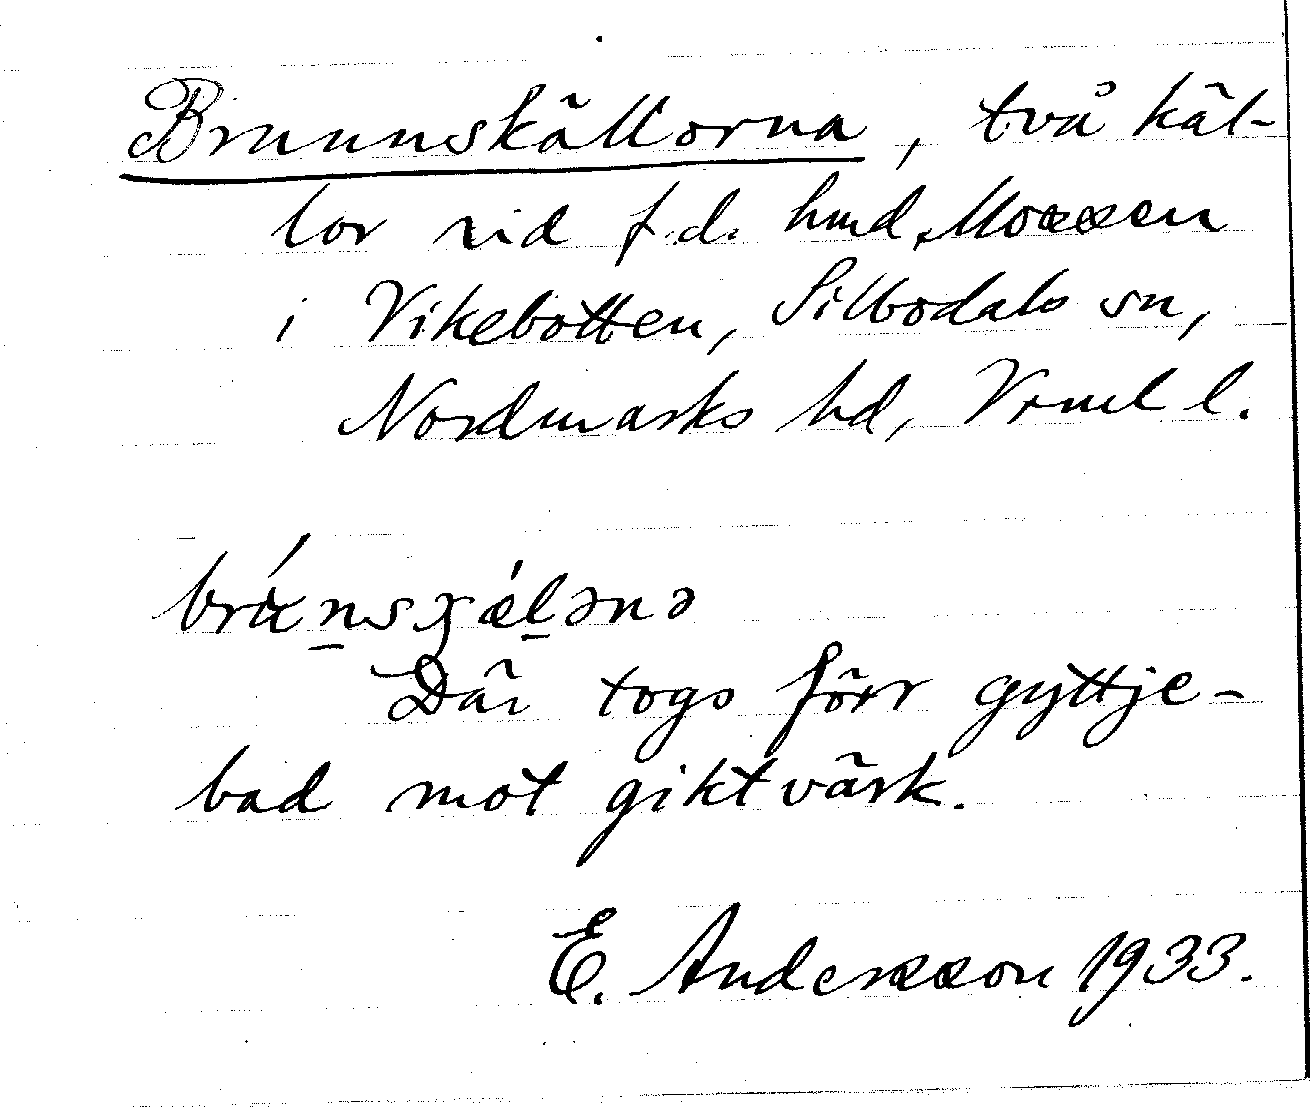 Brunnskällorna, två käl-
lor vid f.d. hmd. Mossen
i Vikebotten, Silbodals sn,
Nordmarks hd, Vrml l.
Där togs förr gyttje-
bad mot giktvärk.
E. Andersson 1933.